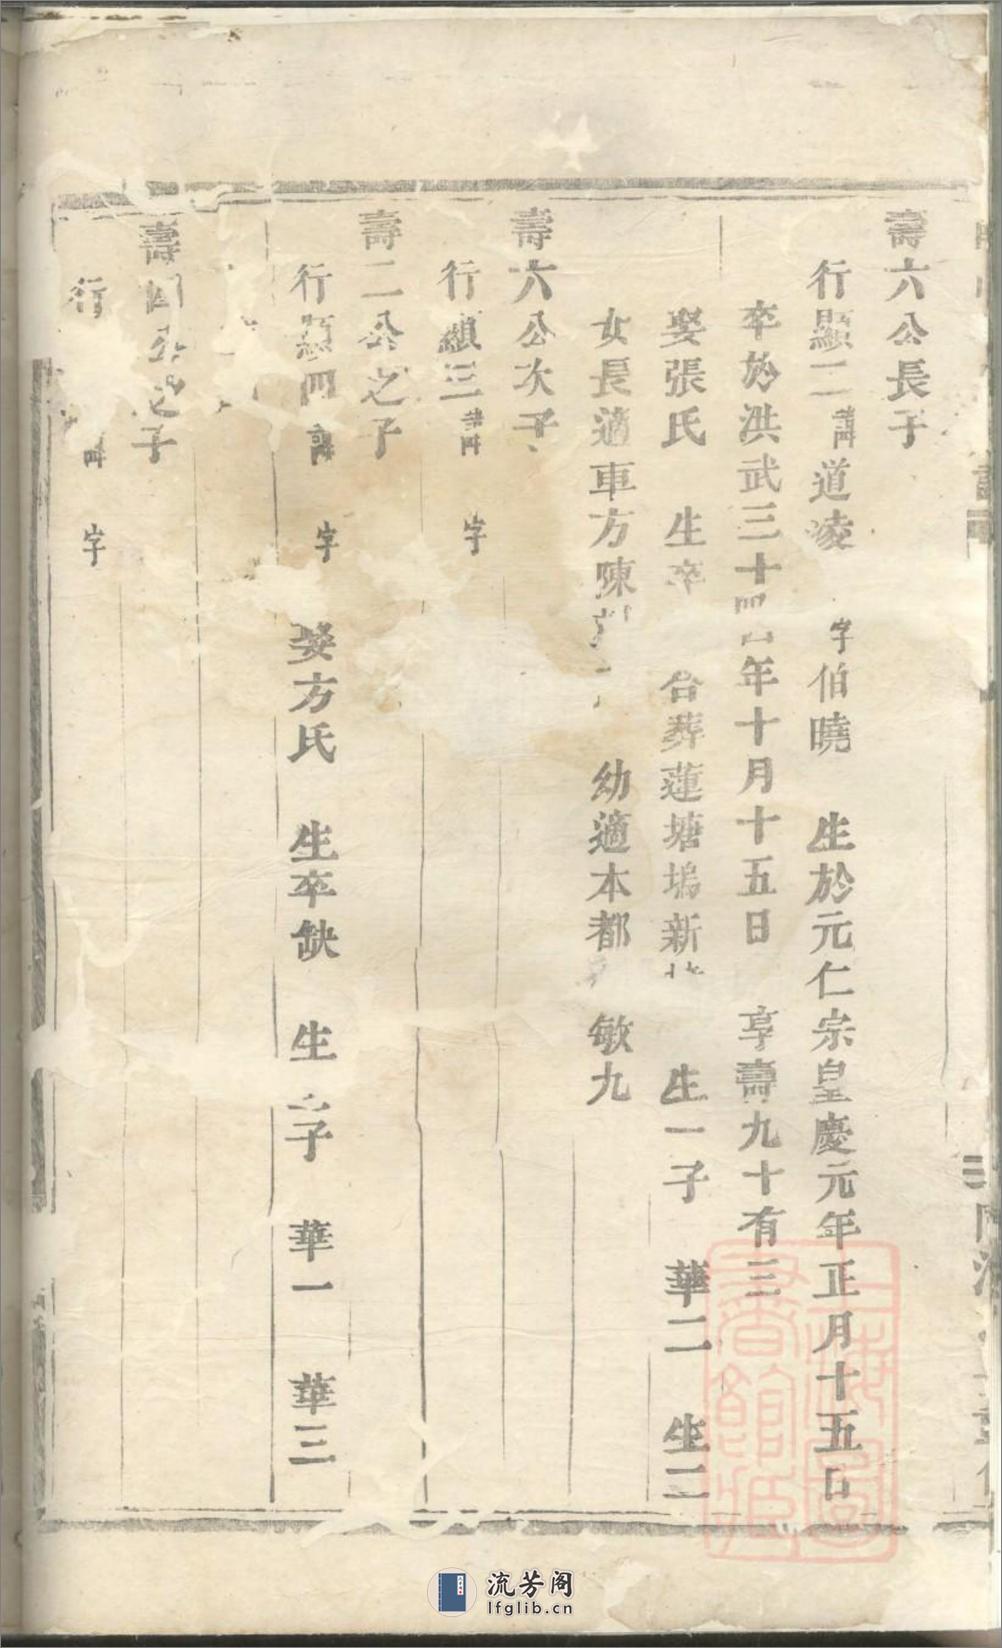 壽六公長子
行顯二 諱 道凌 字 伯曉 生於元仁宗皇慶元年正月十五日
卒於洪武三十四年十月十五日 享壽九十有三
娶張氏 生卒 合葬蓮塘塢新 生一子 華二 生二
女長適車方陳 幼適本都 敏九
壽六公次子
行顯三 諱 字
壽二公之子
行顯四 諱 字 娶方氏 生卒缺 生 子 華一 華三
壽四公之子
行 諱 字
上海圖書館藏
流芳阁
lfglib.cn